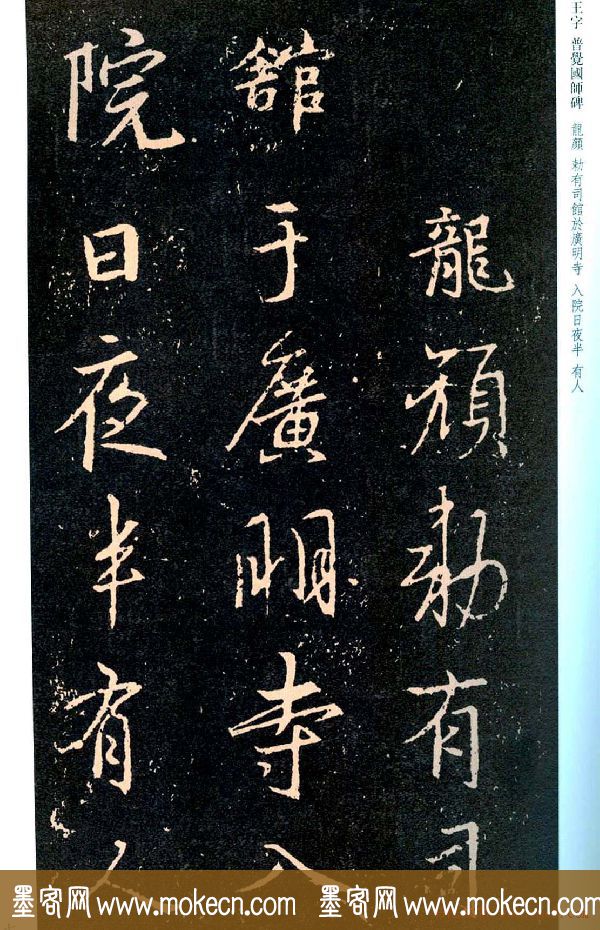 王字 普覺國師碑 龍顏 勅有司館於廣明寺 入院日夜半 有人
龍顏勅有司
舘于廣明寺入
院日夜半有人
墨客网 www.mokecn.com 墨客网 www.mokecn.com